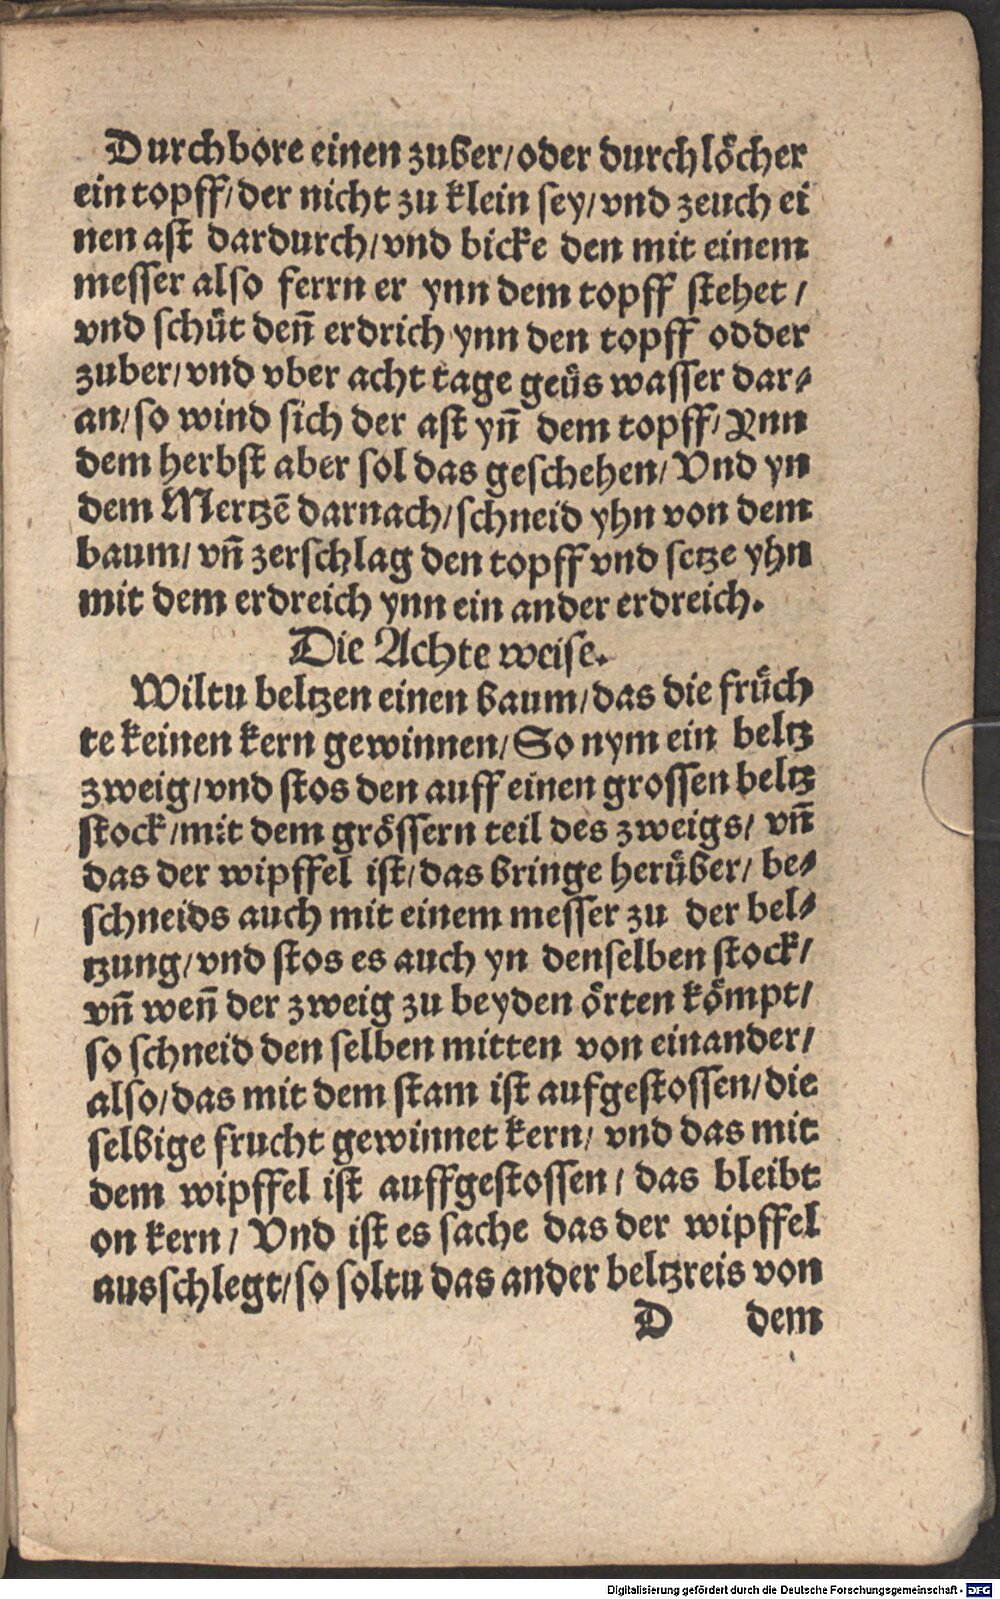 Durchbore einen zuber/oder durchlöcher
ein topff/der nicht zu klein sey/vnd zeuch ei
nen ast dardurch/vnd bicke den mit einem
messer also ferrn er ynn dem topff stehet/
vnd schüt deñ erdrich ynn den topff odder
zuber/vnd vber acht tage geüs wasser dar⸗
an/so wind sich der ast yñ dem topff/Ynn
dem herbst aber sol das geschehen/Vnd yn
dem Mertzē darnach/schneid yhn von dem
baum/vñ zerschlag den topff vnd setze yhn
mit dem erdreich ynn ein ander erdreich.
Die Achte weise.
Wiltu beltzen einen baum/das die früch
te keinen kern gewinnen/So nym ein beltz
zweig/vnd stos den auff einen grossen beltz
stock/mit dem grössern teil des zweigs/vñ
das der wipffel ist/das bringe herüber/be⸗
schneids auch mit einem messer zu der bel⸗
tzung/vnd stos es auch yn denselben stock/
vñ weñ der zweig zu beyden örten kömpt/
so schneid den selben mitten von einander/
also/das mit dem stam ist aufgestossen/die
selbige frucht gewinnet kern/vnd das mit
dem wipffel ist auffgestossen/das bleibt
on kern/Vnd ist es sache das der wipffel
ausschlegt/so soltu das ander beltzreis von
D dem
Digitalisierung gefördert durch die Deutsche Forschungsgemeinschaft - DFG